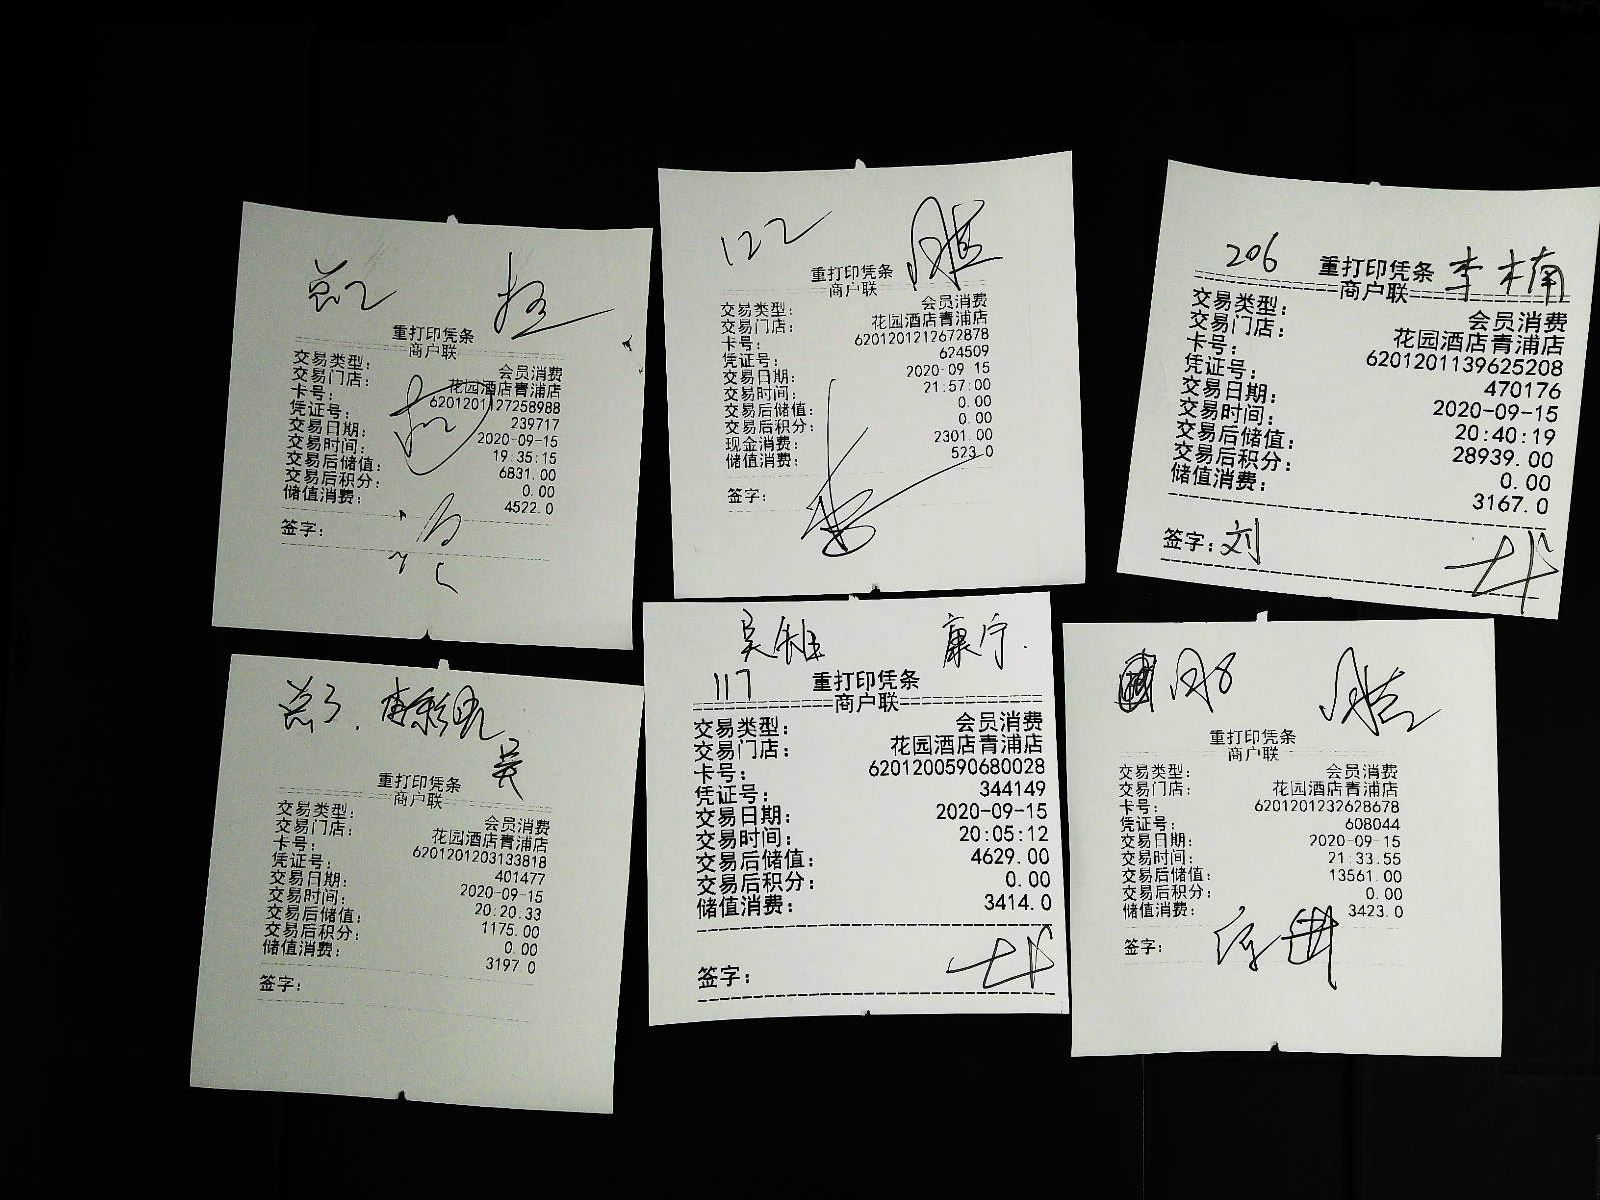 重打印凭条
商户联
交易类型： 会员消费
交易门店： 花园酒店青浦店
卡号： 6201201127258988
凭证号： 239717
交易日期： 2020-09-15
交易时间： 19:35:15
交易后储值： 6831.00
交易后积分： 0.00
储值消费： 4522.0
签字：
122
重打印凭条
商户联
交易类型： 会员消费
交易门店： 花园酒店青浦店
卡号： 6201201212672878
凭证号： 624509
交易日期： 2020-09 15
交易时间： 21:57:00
交易后储值： 0.00
交易后积分： 0.00
现金消费： 2301.00
储值消费： 523.0
签字：
206 重打印凭条 李木楠
商户联
交易类型： 会员消费
交易门店： 花园酒店青浦店
卡号： 6201201139625208
凭证号： 470176
交易日期： 2020-09-15
交易时间： 20:40:19
交易后储值： 28939.00
交易后积分： 0.00
储值消费： 3167.0
签字：刘
总3. 吴
重打印凭条
商户联
交易类型： 会员消费
交易门店： 花园酒店青浦店
卡号： 6201201203133818
凭证号： 401477
交易日期： 2020-09-15
交易时间： 20:20.33
交易后储值： 1175.00
交易后积分： 0.00
储值消费： 3197 0
签字：
吴 康宁.
117 重打印凭条
商户联
交易类型： 会员消费
交易门店： 花园酒店青浦店
卡号： 6201200590680028
凭证号： 344149
交易日期： 2020-09-15
交易时间： 20:05:12
交易后储值： 4629.00
交易后积分： 0.00
储值消费： 3414.0
签字：
重打印凭条
商户联
交易类型： 会员消费
交易门店： 花园酒店青浦店
卡号： 6201201232628678
凭证号： 608044
交易日期： 2020-09-15
交易时间： 21:33.55
交易后储值： 13561.00
交易后积分： 0.00
储值消费： 3423.0
签字：